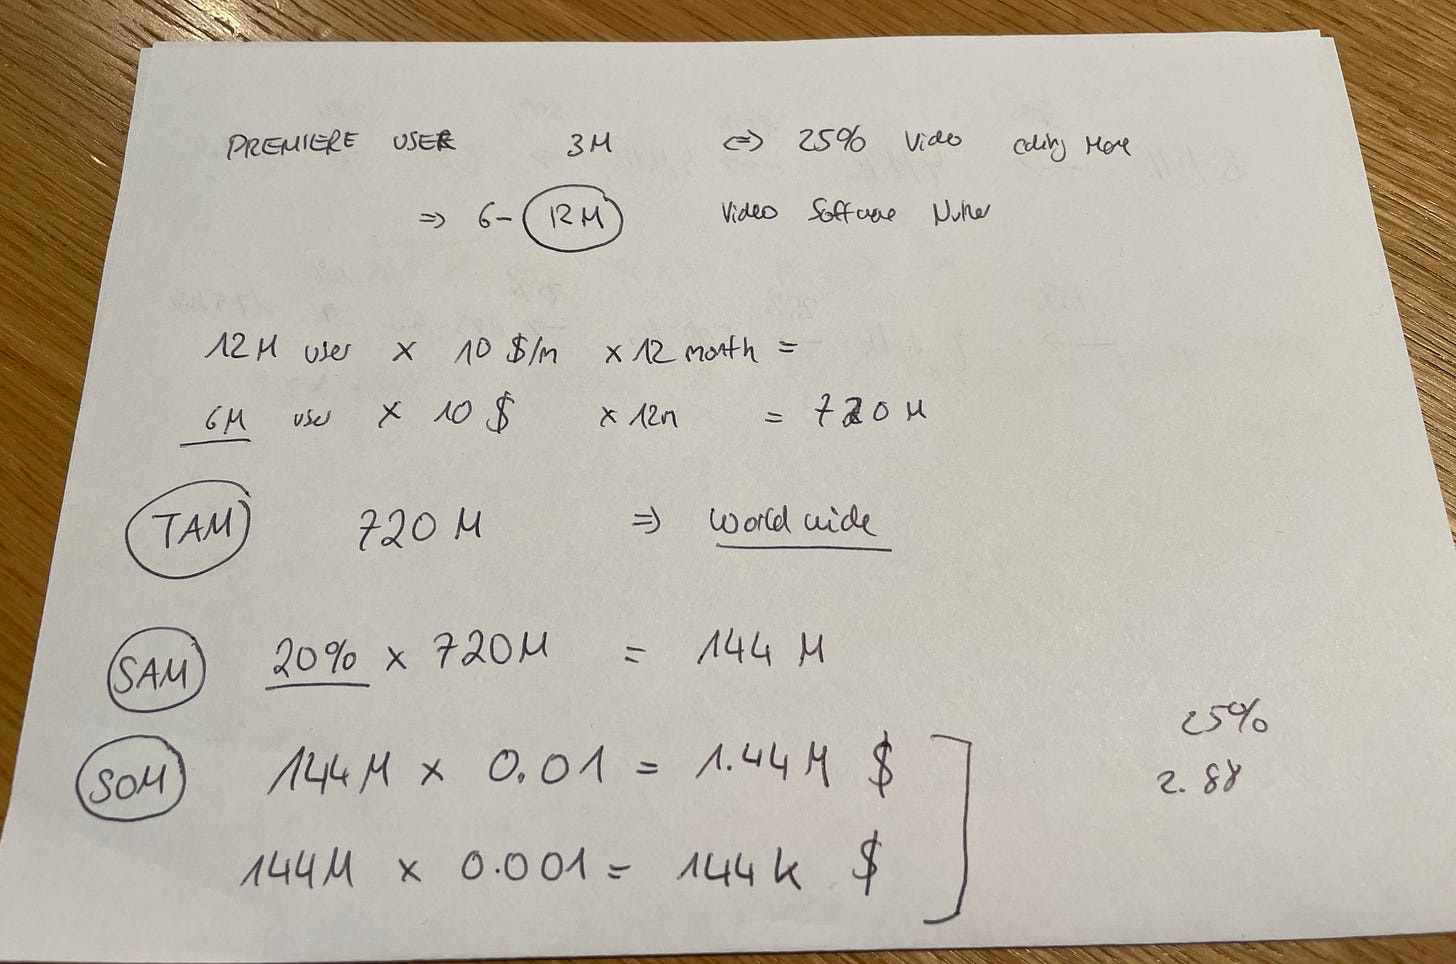 PREMIERE USER 3M <=> 25% Video
=> 6- 12M Video Software
12M user x 10 $/m x 12 month =
6M user x 10 $ x 12m = 720 M
TAM 720 M => world wide
SAM 20% x 720M = 144 M
25%
SOM 144M x 0.01 = 1.44M $
2.88
144M x 0.001 = 144k $